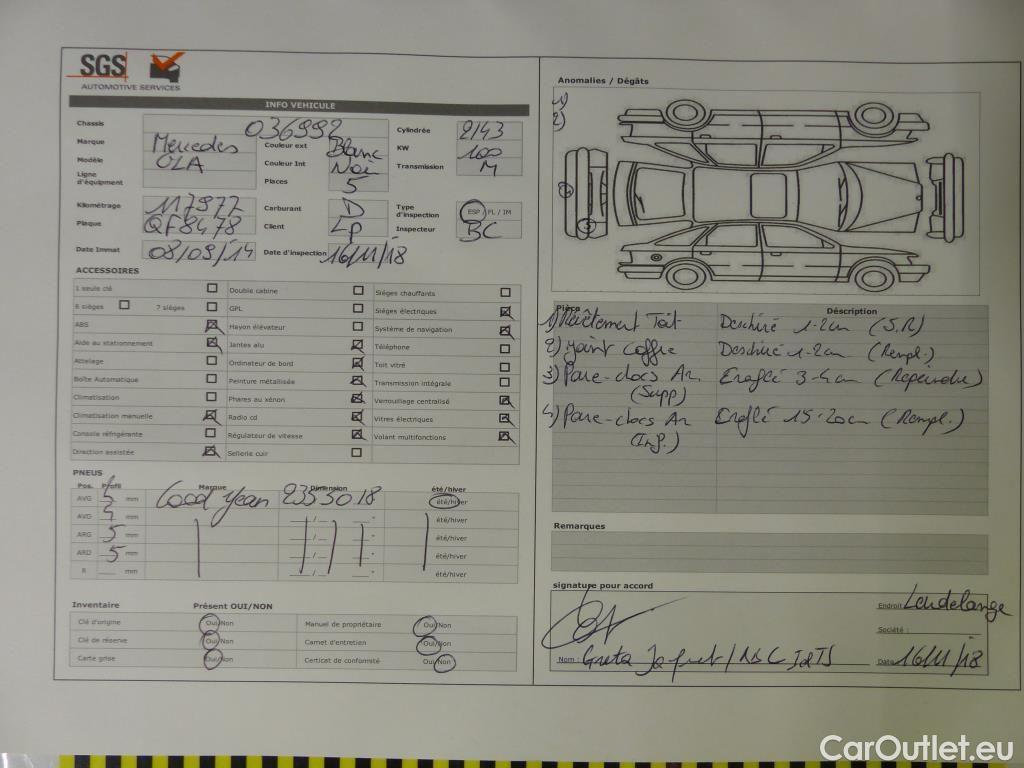 SGS
AUTOMOTIVE SERVICES
INFO VEHICULE
Chassis 036992
Marque Mercedes
Modèle CLA
Ligne d'équipement
Couleur ext Blanc
Couleur Int Noir
Places 5
Cylindrée 2143
KW 100
Transmission M
Kilométrage 117977
Plaque QF8478
Carburant D
Client Lp
Type d'inspection ESP / FL / IM
Inspecteur BC
Date Immat 08/09/14
Date d'inspection 16/11/18
ACCESSOIRES
1 seule clé
Double cabine
Sièges chauffants
6 sièges 7 sièges
GPL
Sièges électriques
ABS
Hayon élévateur
Système de navigation
Aide au stationnement
Jantes alu
Téléphone
Attelage
Ordinateur de bord
Toit vitré
Boîte Automatique
Peinture métallisée
Transmission intégrale
Climatisation
Phares au xénon
Verrouillage centralisé
Climatisation manuelle
Radio cd
Vitres électriques
Console réfrigérante
Régulateur de vitesse
Volant multifonctions
Direction assistée
Sellerie cuir
PNEUS
Pos. Profil Marque Dimension été/hiver
AVG mm Good Year 235 50 18 été/hiver
AVD mm été/hiver
ARG 5 mm été/hiver
ARD 5 mm été/hiver
R mm été/hiver
Inventaire Présent OUI/NON
Clé d'origine Oui/Non
Manuel de propriétaire Oui/Non
Clé de réserve Oui/Non
Carnet d'entretien Oui/Non
Carte grise Oui/Non
Certicat de conformité Oui/Non
Anomalies / Dégâts
1)
2)
Pièce Déscription
1) Revêtement Toit Deschiré 1-2cm (S.R)
2) Joint coffre Deschiré 1-2cm (Rempl.)
3) Pare-chocs Ar. (Supp) Eraflé 3-4cm (Repeindre)
4) Pare-chocs Ar (Inf.) Eraflé 15-20cm (Rempl.)
Remarques
signature pour accord
Endroit Leudelange
Société :
Nom : Greta
Date 16/11/18
CarOutlet.eu